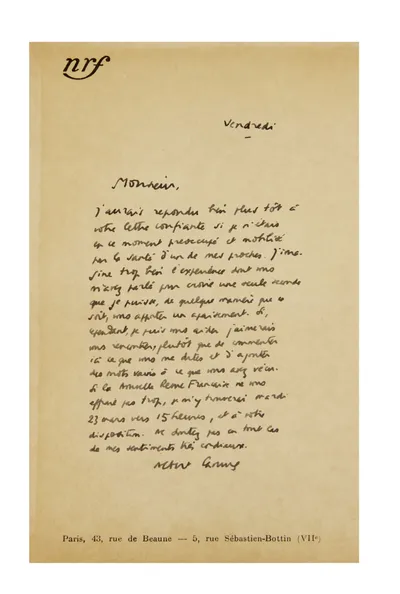 nrf
Vendredi
Monsieur,
j'aurais répondu bien plus tôt à
votre lettre confiante si je n'étais
en ce moment préoccupé et mobilisé
par la santé d'un de mes proches. J'ima-
gine trop bien l'expérience dont vous
m'avez parlé pour croire une seule seconde
que je puisse, de quelque manière que ce
soit, vous apporter un apaisement. Si,
cependant, je puis vous aider j'aimerais
vous rencontrer, plutôt que de commenter
ici ce que vous me dites et d'ajouter
des mots vains à ce que vous avez vécu.
Si la Nouvelle Revue Française ne vous
effraye pas trop, je m'y trouverai mardi
23 mars vers 15 heures, et à votre
disposition. Ne doutez pas en tout cas
de mes sentiments très cordiaux.
Albert Camus
Paris, 43, rue de Beaune — 5, rue Sébastien-Bottin (VIIe)